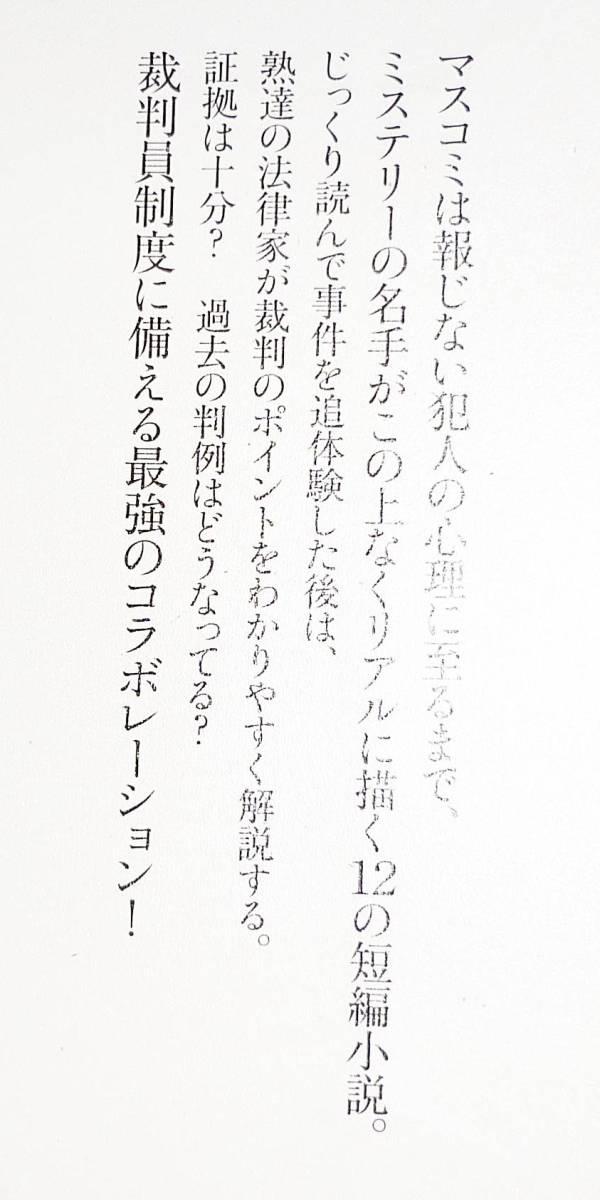 マスコミは報じない犯人の心理に至るまで、
ミステリーの名手がこの上なくリアルに描く12の短編小説。
じっくり読んで事件を追体験した後は、
熟達の法律家が裁判のポイントをわかりやすく解説する。
証拠は十分？　過去の判例はどうなってる？
裁判員制度に備える最強のコラボレーション！